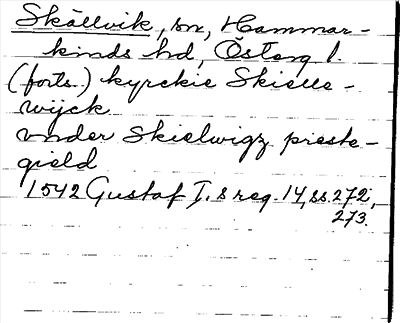 Skällvik, sn, Hammar-
kinds hd, Österg l.
(forts.) kyrckie Skielle-
wijck
vnder Skielwigz preste-
gield
1542 Gustaf I.s reg. 14, ss. 272,
273.